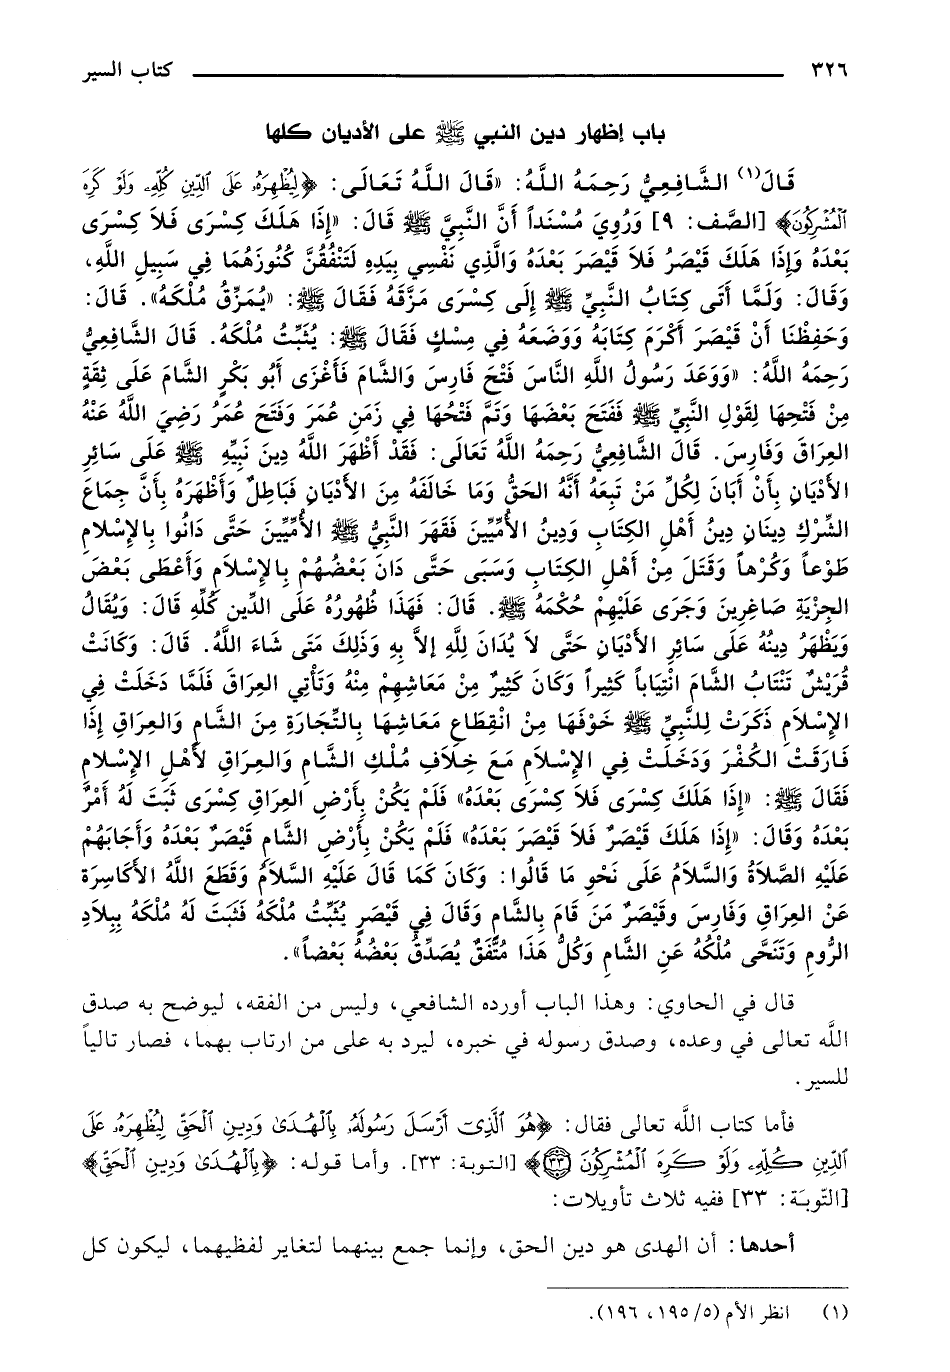 ٣٢٦ كتاب السير
باب إظهار دين النبي ﷺ على الأديان كلها
قَالَ(١) الشَّافِعِيُّ رَحِمَهُ اللَّهُ: «قَالَ اللَّهُ تَعَالَى: ﴿لِيُظْهِرَهُ عَلَى ٱلدِّينِ كُلِّهِۦ وَلَوْ كَرِهَ
ٱلْمُشْرِكُونَ﴾ [الصَّف: ٩] وَرُوِيَ مُسْنَداً أَنَّ النَّبِيَّ ﷺ قَالَ: «إِذَا هَلَكَ كِسْرَى فَلاَ كِسْرَى
بَعْدَهُ وَإِذَا هَلَكَ قَيْصَرُ فَلاَ قَيْصَرَ بَعْدَهُ وَالَّذِي نَفْسِي بِيَدِهِ لَتَنْفُقُنَّ كُنُوزَهُمَا فِي سَبِيلِ اللَّهِ،
وَقَالَ: وَلَمَّا أَتَى كِتَابُ النَّبِيِّ ﷺ إِلَى كِسْرَى مَزَّقَهُ فَقَالَ ﷺ: «يُمَزِّقُ مُلْكَهُ». قَالَ:
وَحَفِظْنَا أَنْ قَيْصَرَ أَكْرَمَ كِتَابَهُ وَوَضَعَهُ فِي مِسْكٍ فَقَالَ ﷺ: يُثَبِّتُ مُلْكَهُ. قَالَ الشَّافِعِيُّ
رَحِمَهُ اللَّهُ: «وَوَعَدَ رَسُولُ اللَّهِ النَّاسَ فَتْحَ فَارِسَ وَالشَّام فَأَغْزَى أَبُو بَكْرٍ الشَّامَ عَلَى ثِقَةٍ
مِنْ فَتْحِهَا لِقَوْلِ النَّبِيِّ ﷺ فَفَتَحَ بَعْضَهَا وَتَمَّ فَتْحُهَا فِي زَمَنِ عُمَرَ وَفَتَحَ عُمَرُ رَضِيَ اللَّهُ عَنْهُ
العِرَاقَ وَفَارِسَ. قَالَ الشَّافِعِيُّ رَحِمَهُ اللَّهُ تَعَالَى: فَقَدْ أَظْهَرَ اللَّهُ دِينَ نَبِيِّهِ ﷺ عَلَى سَائِرِ
الأَدْيَانِ بِأَنْ أَبَانَ لِكُلِّ مَنْ تَبِعَهُ أَنَّهُ الحَقُّ وَمَا خَالَفَهُ مِنَ الأَدْيَانِ فَبَاطِلٌ وَأَظْهَرَهُ بِأَنَّ جِمَاعَ
الشِّرْكِ دِينَانِ دِينُ أَهْلِ الكِتَابِ وَدِينُ الأُمِّيِّينَ فَقَهَرَ النَّبِيُّ ﷺ الأُمِّيِّينَ حَتَّى دَانُوا بِالإِسْلاَمِ
طَوْعاً وَكُرْهاً وَقَتَلَ مِنْ أَهْلِ الكِتَابِ وَسَبَى حَتَّى دَانَ بَعْضُهُمْ بِالإِسْلاَمِ وَأَعْطَى بَعْضَ
الجِزْيَةِ صَاغِرِينَ وَجَرَى عَلَيْهِمْ حُكْمَهُ ﷺ. قَالَ: فَهَذَا ظُهُورُهُ عَلَى الدِّينِ كُلِّهِ قَالَ: وَيُقَالُ
وَيَظْهَرُ دِينُهُ عَلَى سَائِرِ الأَدْيَانِ حَتَّى لاَ يُدَانَ لِلَّهِ إِلاَّ بِهِ وَذَلِكَ مَتَى شَاءَ اللَّهُ. قَالَ: وَكَانَتْ
قُرَيْشٌ تَنْتَابُ الشَّامَ انْتِيَاباً كَثِيراً وَكَانَ كَثِيرٌ مِنْ مَعَاشِهِمْ مِنْهُ وَتَأْتِي العِرَاقَ فَلَمَّا دَخَلَتْ فِي
الإِسْلاَمِ ذَكَرَتْ لِلنَّبِيِّ ﷺ خَوْفَهَا مِنْ انْقِطَاعِ مَعَاشِهَا بِالتِّجَارَةِ مِنَ الشَّامِ وَالعِرَاقِ إِذَا
فَارَقَتْ الكُفْرَ وَدَخَلَتْ فِي الإِسْلاَمِ مَعَ خِلاَفِ مُلْكِ الشَّامِ وَالعِرَاقِ لأَهْلِ الإِسْلاَمِ
فَقَالَ ﷺ: «إِذَا هَلَكَ كِسْرَى فَلاَ كِسْرَى بَعْدَهُ» فَلَمْ يَكُنْ بِأَرْضِ العِرَاقِ كِسْرَى ثَبَتَ لَهُ أَمْرٌ
بَعْدَهُ وَقَالَ: «إِذَا هَلَكَ قَيْصَرُ فَلاَ قَيْصَرَ بَعْدَهُ» فَلَمْ يَكُنْ بِأَرْضِ الشَّامِ قَيْصَرٌ بَعْدَهُ وَأَجَابَهُمْ
عَلَيْهِ الصَّلاَةُ وَالسَّلاَمُ عَلَى نَحْوِ مَا قَالُوا: وَكَانَ كَمَا قَالَ عَلَيْهِ السَّلاَمُ وَقَطَعَ اللَّهُ الأَكَاسِرَةَ
عَنْ العِرَاقِ وَفَارِسَ وقَيْصَرٌ مَنَ قَامَ بِالشَّامِ وَقَالَ فِي قَيْصَرِ يُثَبِّتُ مُلْكَهُ فَثَبَتَ لَهُ مُلْكَهُ بِبِلاَدِ
الرُّومِ وَتَنَحَّى مُلْكُهُ عَنِ الشَّامِ وَكُلُّ هَذَا مُتَّفَقٌ يُصَدِّقُ بَعْضُهُ بَعْضاً».
قال في الحاوي: وهذا الباب أورده الشافعي، وليس من الفقه، ليوضح به صدق
اللَّه تعالى في وعده، وصدق رسوله في خبره، ليرد به على من ارتاب بهما، فصار تالياً
للسير.
فأما كتاب اللَّه تعالى فقال: ﴿هُوَ ٱلَّذِىٓ أَرْسَلَ رَسُولَهُۥ بِٱلْهُدَىٰ وَدِينِ ٱلْحَقِّ لِيُظْهِرَهُۥ عَلَى
ٱلدِّينِ كُلِّهِۦ وَلَوْ كَرِهَ ٱلْمُشْرِكُونَ ٣٣﴾ [التوبة: ٣٣]. وأما قوله: ﴿بِٱلْهُدَىٰ وَدِينِ ٱلْحَقِّ﴾
[التّوبَة: ٣٣] ففيه ثلاث تأويلات:
أحدها: أن الهدى هو دين الحق، وإنما جمع بينهما لتغاير لفظيهما، ليكون كل
(١) انظر الأم (٥/ ١٩٥، ١٩٦).